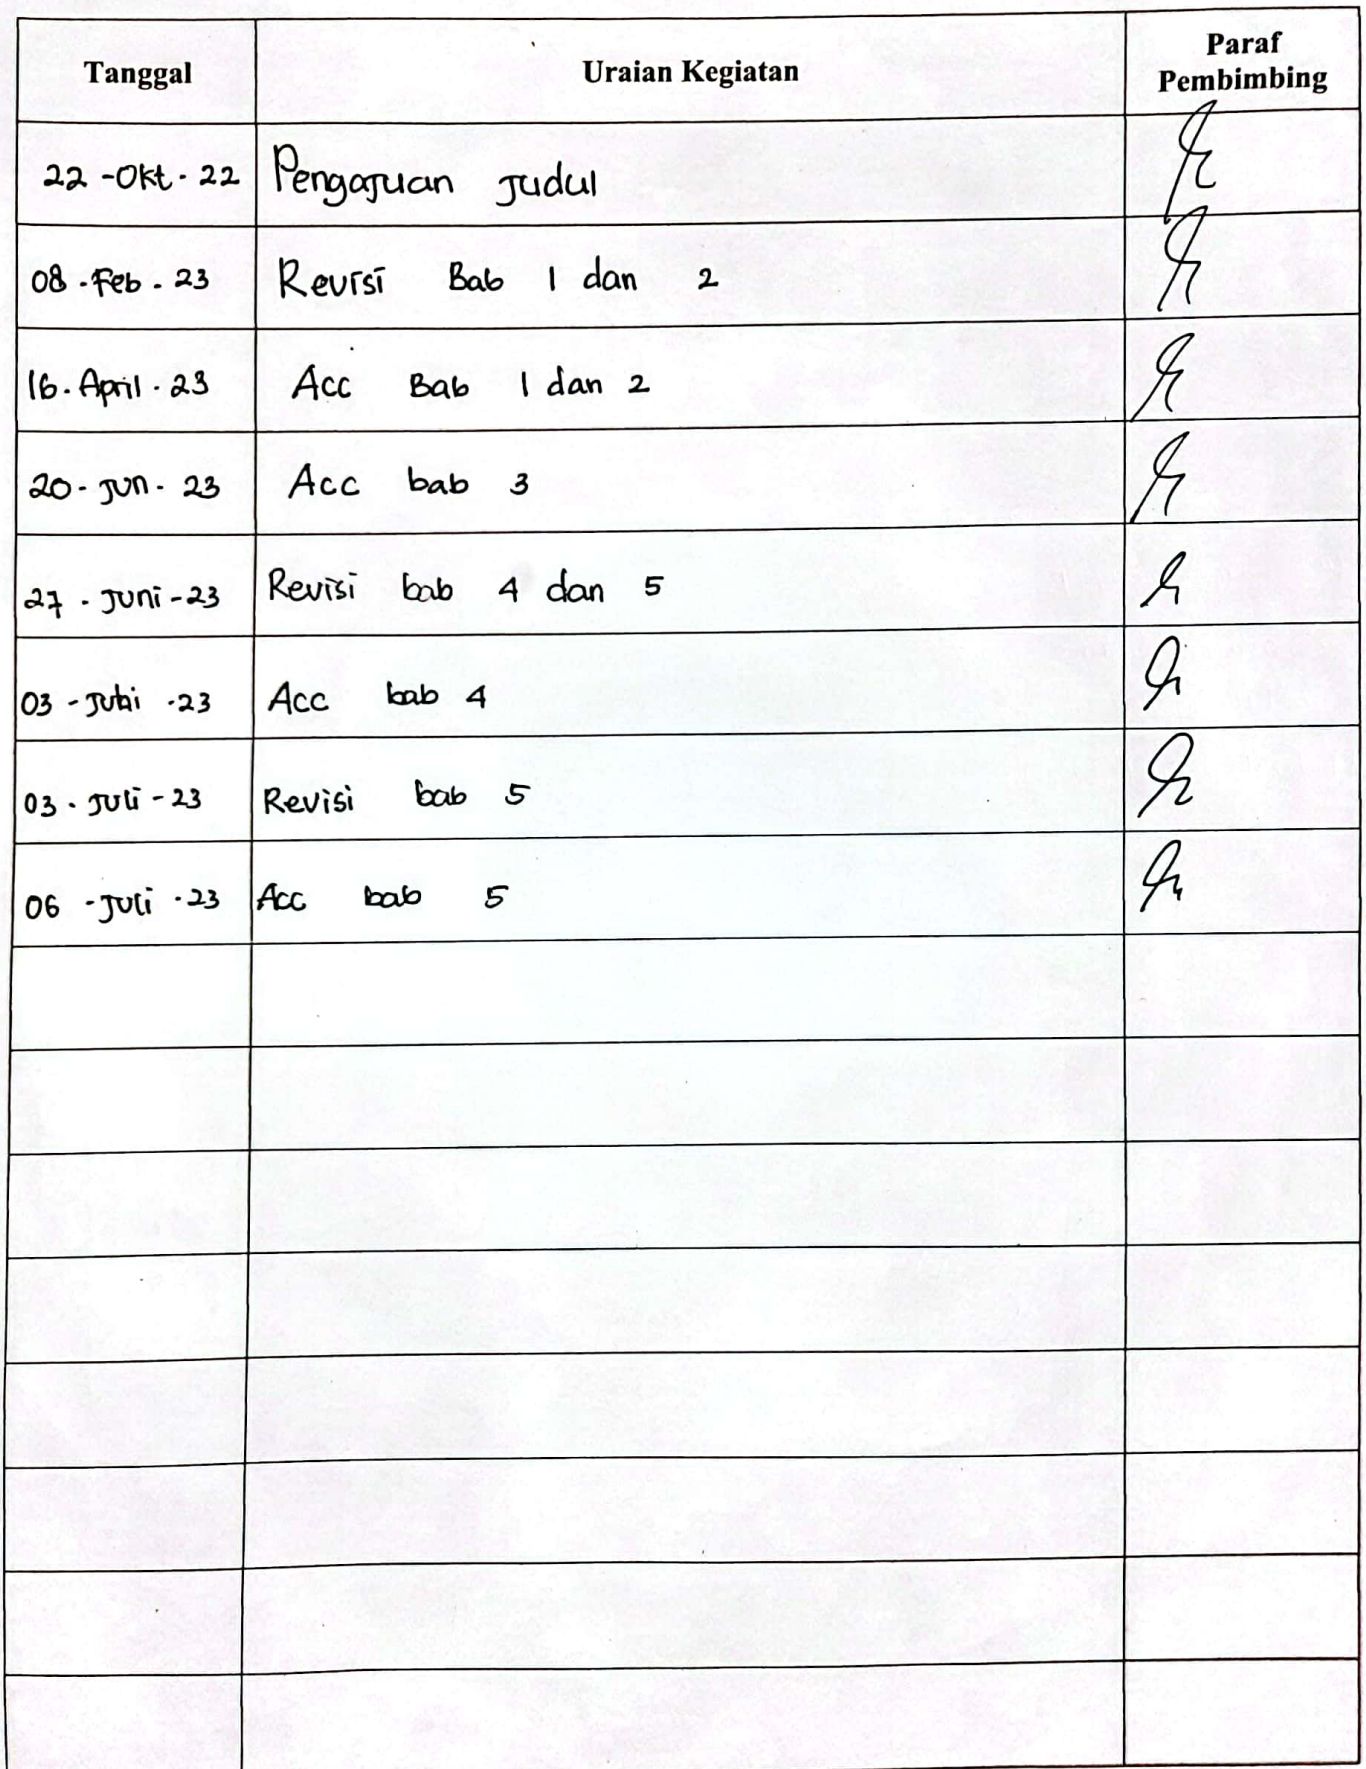 Tanggal Uraian Kegiatan Paraf Pembimbing
22-Okt-22 Pengajuan Judul
08-Feb-23 Revisi Bab 1 dan 2
16-April-23 Acc Bab 1 dan 2
20-Jun-23 Acc bab 3
27-Juni-23 Revisi bab 4 dan 5
03-Juli-23 Acc bab 4
03-Juli-23 Revisi bab 5
06-Juli-23 Acc bab 5